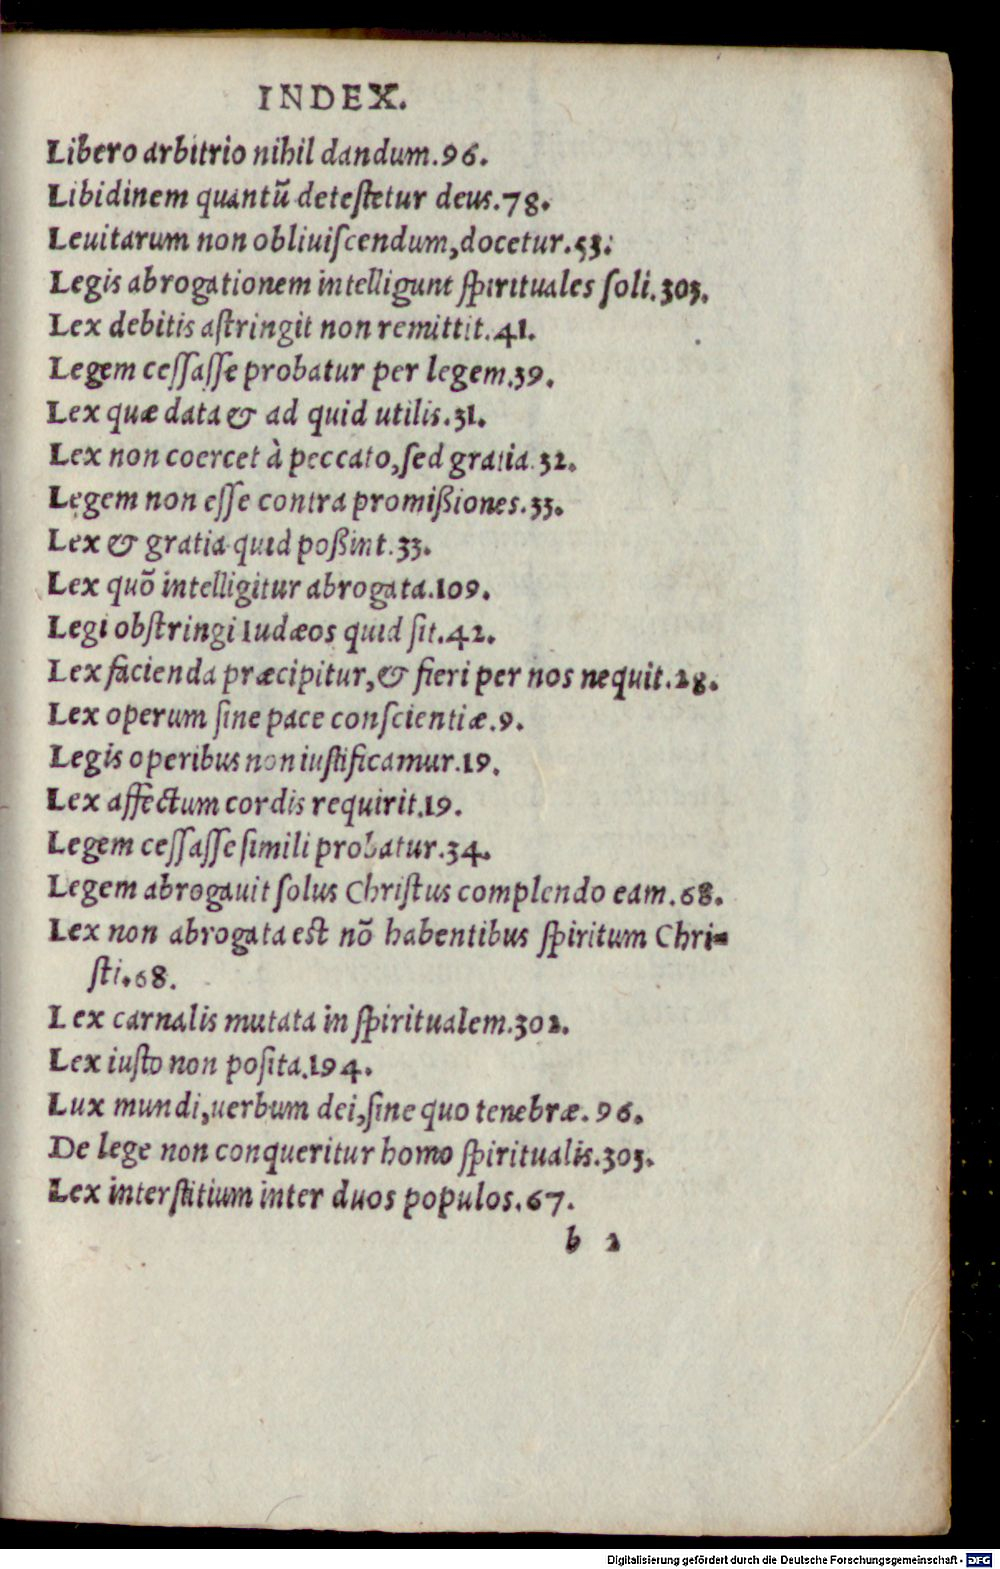 INDEX.
Libero arbitrio nihil dandum.96.
Libidinem quantũ detestetur deus.78.
Leuitarum non obliuiſcendum,docetur.53.
Legis abrogationem intelligunt ſpirituales ſoli.303.
Lex debitis aſtringit non remittit.41.
Legem ceſſaſſe probatur per legem.39.
Lex quæ data & ad quid utilis.31.
Lex non coercet à peccato,ſed gratia.32.
Legem non eſſe contra promißiones.33.
Lex & gratia quid poßint.33.
Lex quõ intelligitur abrogata.109.
Legi obſtringi Iudæos quid ſit.42.
Lex facienda præcipitur,& fieri per nos nequit.28.
Lex operum ſine pace conſcientiæ.9.
Legis operibus non iuſtificamur.19.
Lex affectum cordis requirit.19.
Legem ceſſaſſe ſimili probatur.34.
Legem abrogauit ſolus Chriſtus complendo eam.68.
Lex non abrogata est nõ habentibus ſpiritum Chri-
ſti.68.
Lex carnalis mutata in ſpiritualem.302.
Lex iuſto non poſita.194.
Lux mundi,uerbum dei,ſine quo tenebræ.96.
De lege non conqueritur homo ſpiritualis.303.
Lex interſtitium inter duos populos.67.
b 2
Digitalisierung gefördert durch die Deutsche Forschungsgemeinschaft - DFG